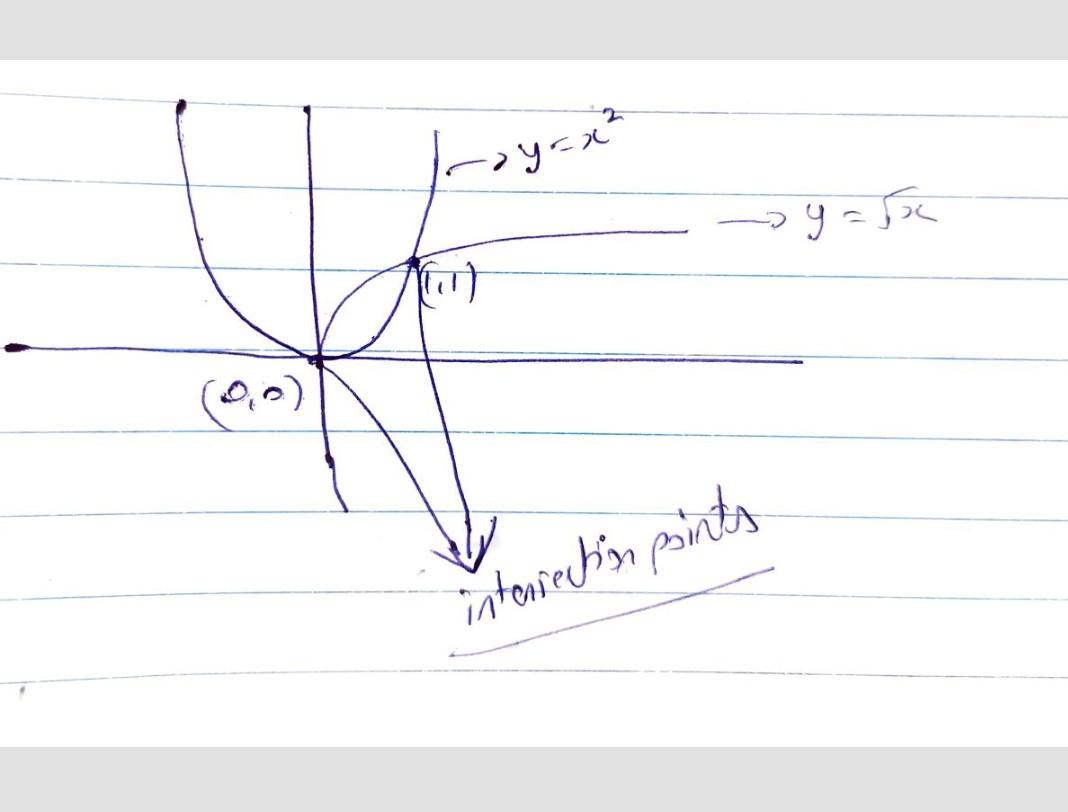 → y = x²
→ y = √x
(1,1)
(0,0)
intersection points